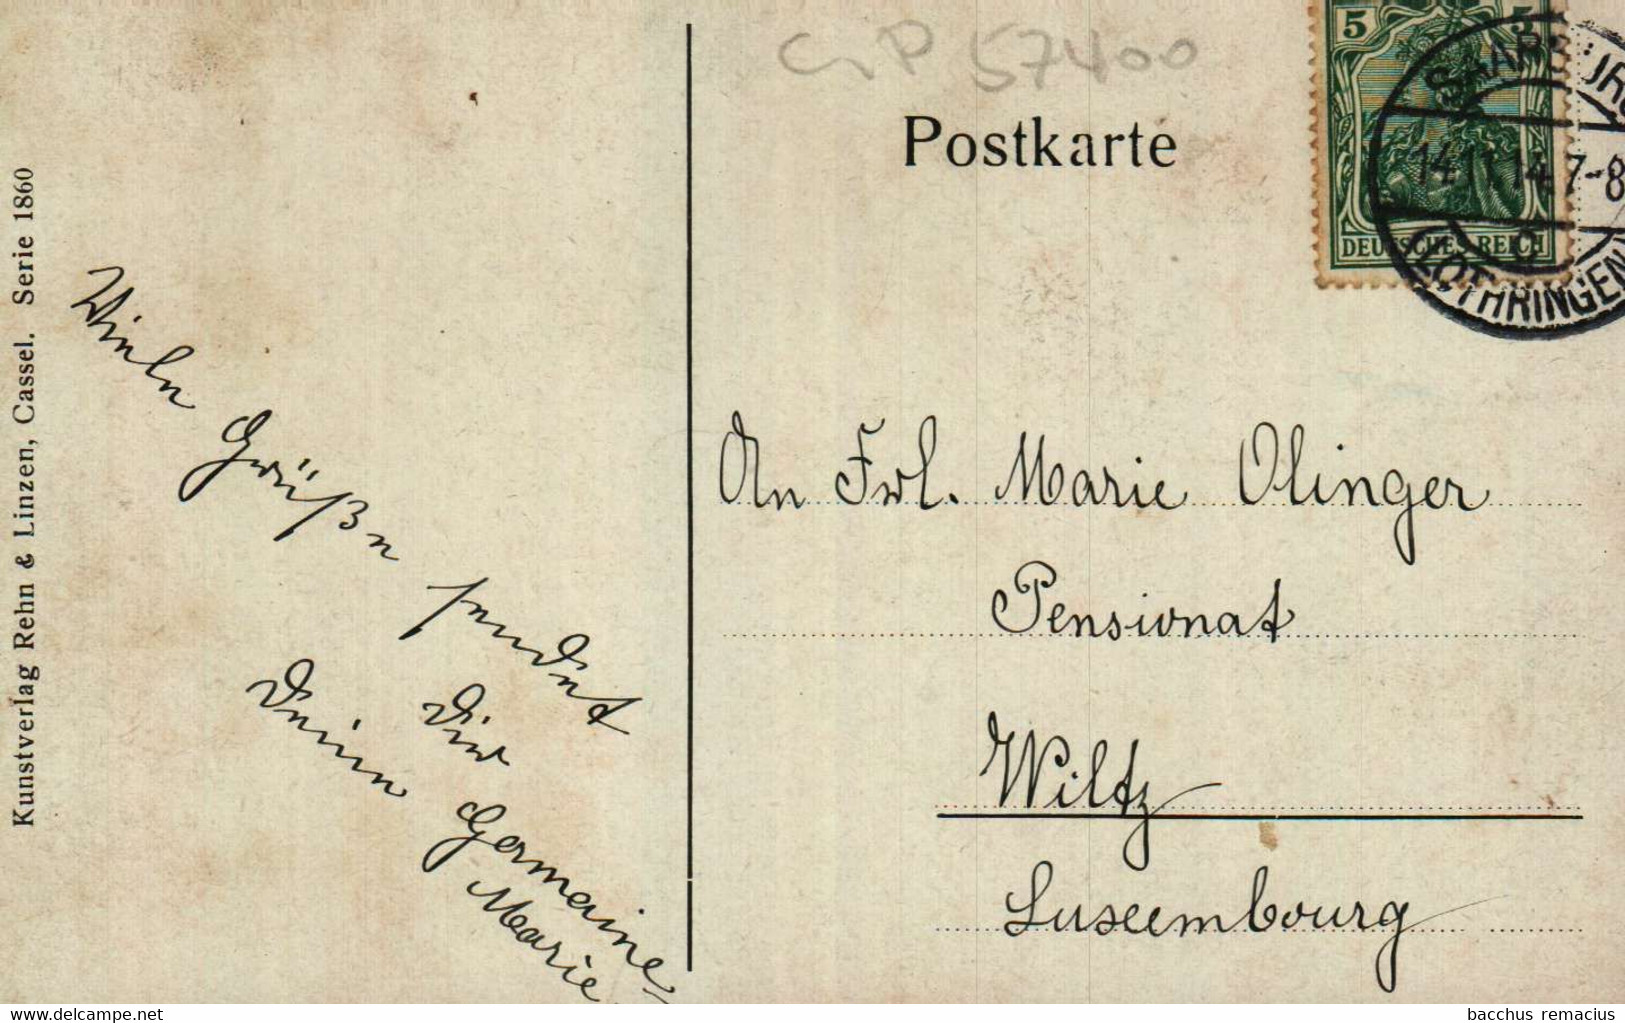 CP 57400
Postkarte
5 5
DEUTSCHES REICH
SAARBURG
14.11.14. 7-8
(LOTHRINGEN)
Kunstverlag Rehn & Linzen, Cassel. Serie 1860
Viele
Grüße
sendet
Dir
Deine
Germaine
Marie
An Frl. Marie Olinger
Pensionat
Wiltz
Luxembourg
www.delcampe.net
bacchus remacius